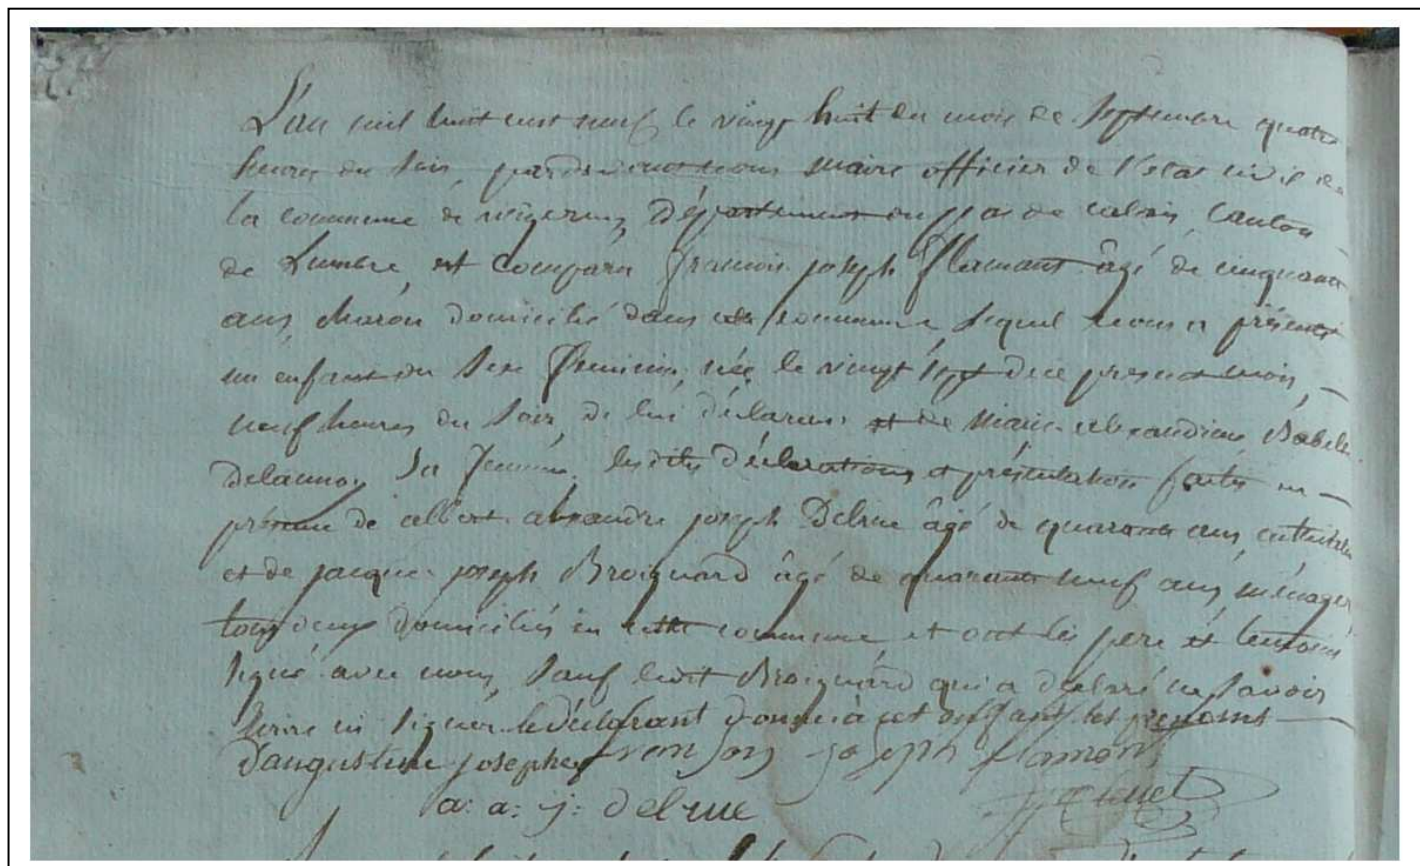 L'an mil huit cent neuf le vingt huit du mois de Septembre quatre
heures du soir, pardevant nous maire officier de l'etat civil de
la commune de département du pas de calais, Canton
de Lumbre, est comparu françois joseph flamant âgé de cinquante
ans, charon domicilié dans commune lequel nous a présenté
un enfant du sexe feminin, née le vingt sept du present mois,
neuf heures du soir, de lui déclarant et de Marie alexandrine
Delaunoy sa femme, lesdites déclarations et présentation faites en
présence de albert alexandre joseph Delrue âgé de quarante ans,
et de jacque joseph Broignard âgé de quarante neuf ans, ménager
tous deux domiciliés en cette commune, et ont les pere et temoin
signé avec nous, sauf ledit Broignard qui a déclaré ne savoir
ecrire ni signer. le déclarant donne à cet enffant les prenoms
d'augustine josephe françois joseph flamant
a: a: j: delrue